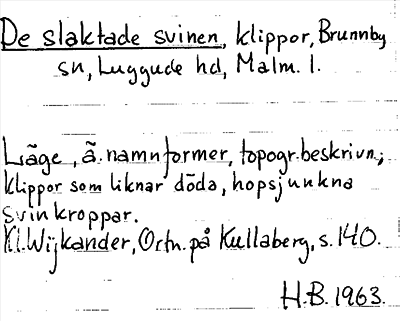 De slaktade svinen, klippor, Brunnby
sn, Luggude hd, Malm. l.
Läge, ä. namnformer, topogr. beskrivn.;
klippor som liknar döda, hopsjunkna
svinkroppar.
Kl. Wijkander, Ortn. på Kullaberg, s. 140.
H.B. 1963.